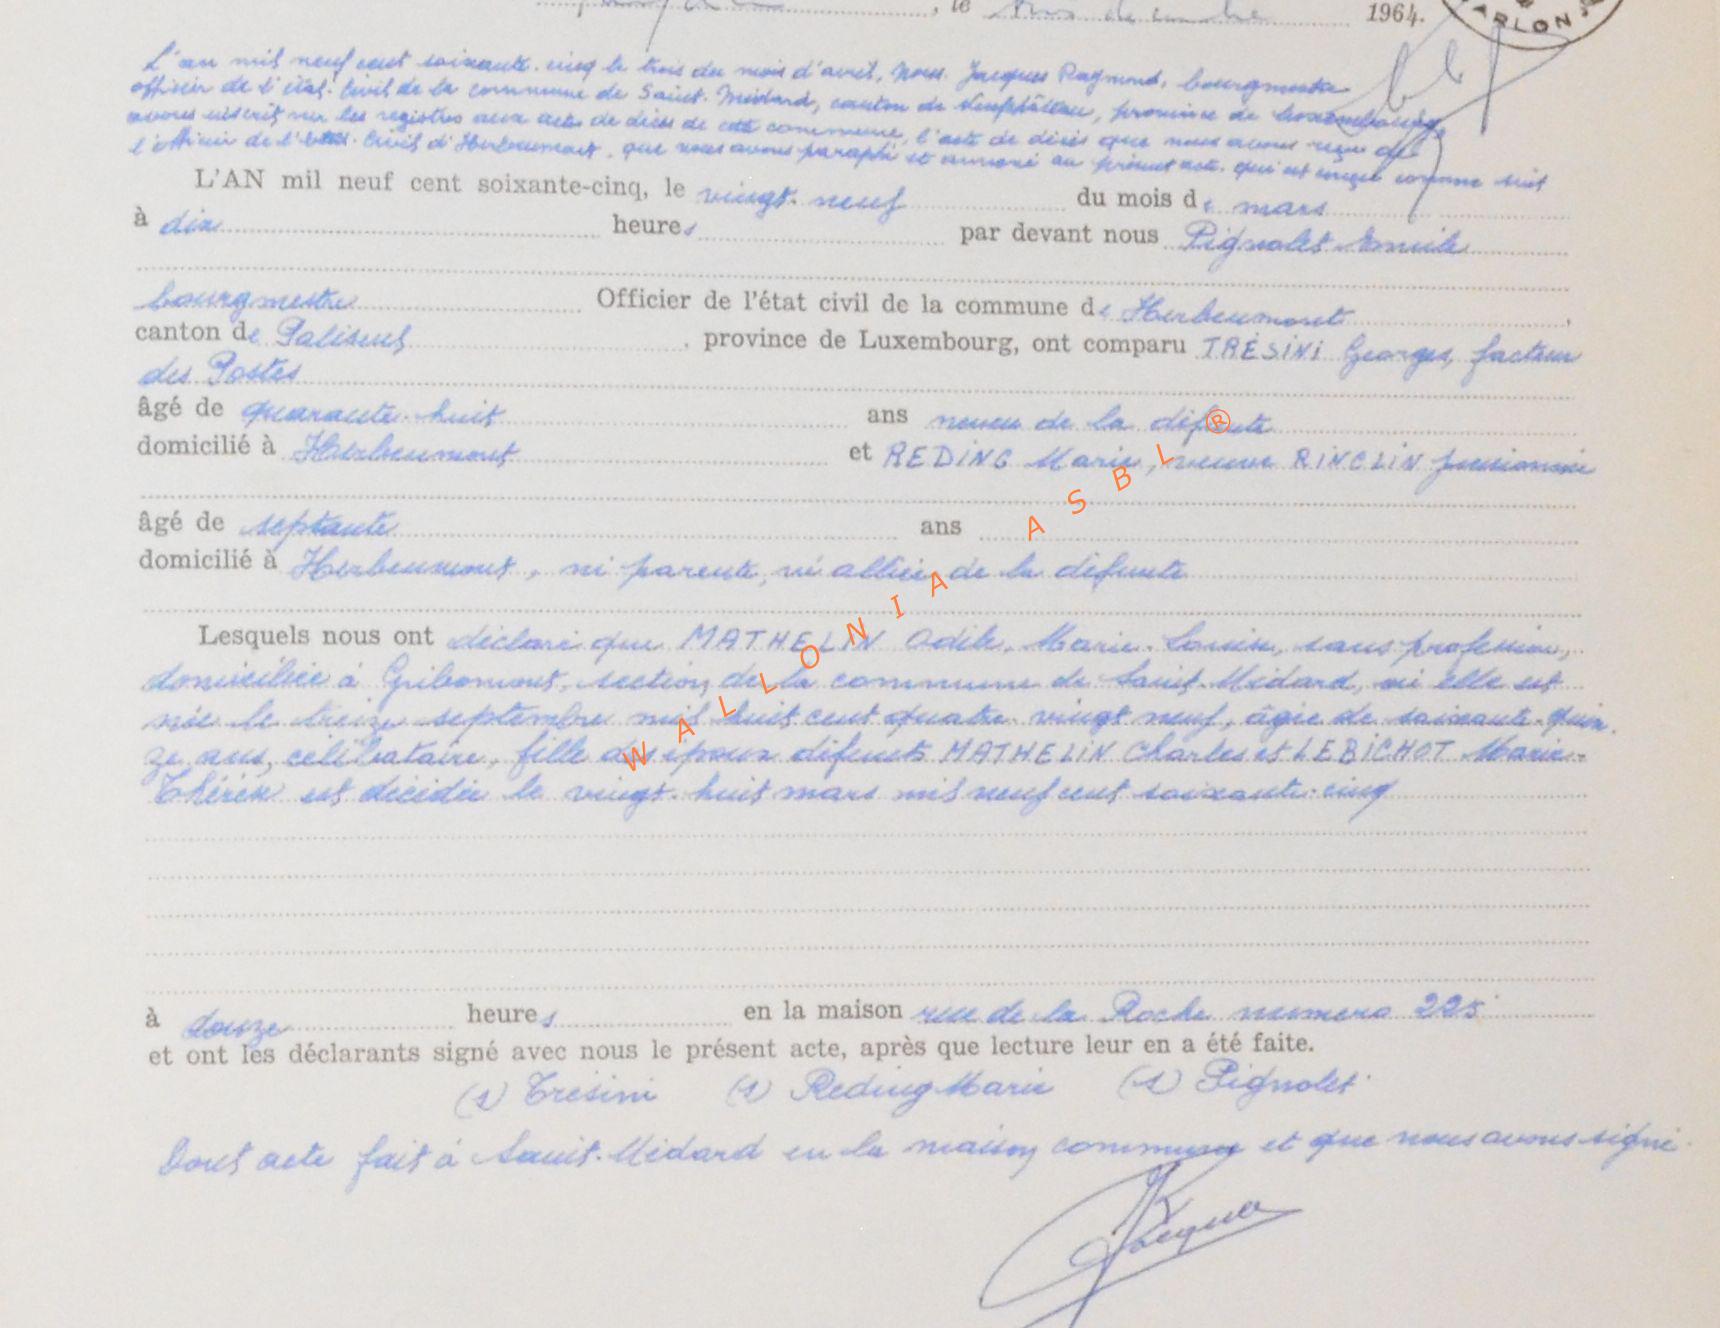 , le trois décembre 1964.
ARLON
L'an mil neuf cent soixante-cinq le trois du mois d'avril, Nous Jacques Raymond, bourgmestre
officier de l'état civil de la commune de Saint-Médard, canton de Neufchâteau, province de Luxembourg,
avons inscrit sur les registres aux actes de décès de cette commune, l'acte de décès que nous avons reçu de
l'officier de l'état-civil d'Herbeumont, que nous avons paraphé et annexé au présent acte, qui est conçu comme suit
L'AN mil neuf cent soixante-cinq, le vingt-neuf du mois de mars
à dix heures par devant nous Pignolet Emile
bourgmestre Officier de l'état civil de la commune de Herbeumont,
canton de Paliseul, province de Luxembourg, ont comparu TRÉSINI Georges, facteur
des Postes
âgé de quarante-huit ans neveu de la défunte
domicilié à Herbeumont et REDING Marie, veuve RINCLIN pensionnée
âgé de septante ans
domicilié à Herbeumont, ni parente, ni alliée de la défunte
Lesquels nous ont déclaré que MATHELIN Odile, Marie-Louise, sans profession,
domiciliée à Gribomont, section de la commune de Saint-Médard, où elle est
née le treize septembre mil huit cent quatre-vingt neuf, âgée de soixante-quin-
ze ans, célibataire, fille des époux défunts MATHELIN Charles et LEBICHOT Marie-
Thérèse est décédée le vingt-huit mars mil neuf cent soixante-cinq
à douze heures en la maison rue de la Roche numero 225
et ont les déclarants signé avec nous le présent acte, après que lecture leur en a été faite.
(s) Trésini (s) Reding Marie (s) Pignolet
Dont acte fait à Saint-Médard en la maison communale et que nous avons signé.
Jacques
WALLONIA ASBL®